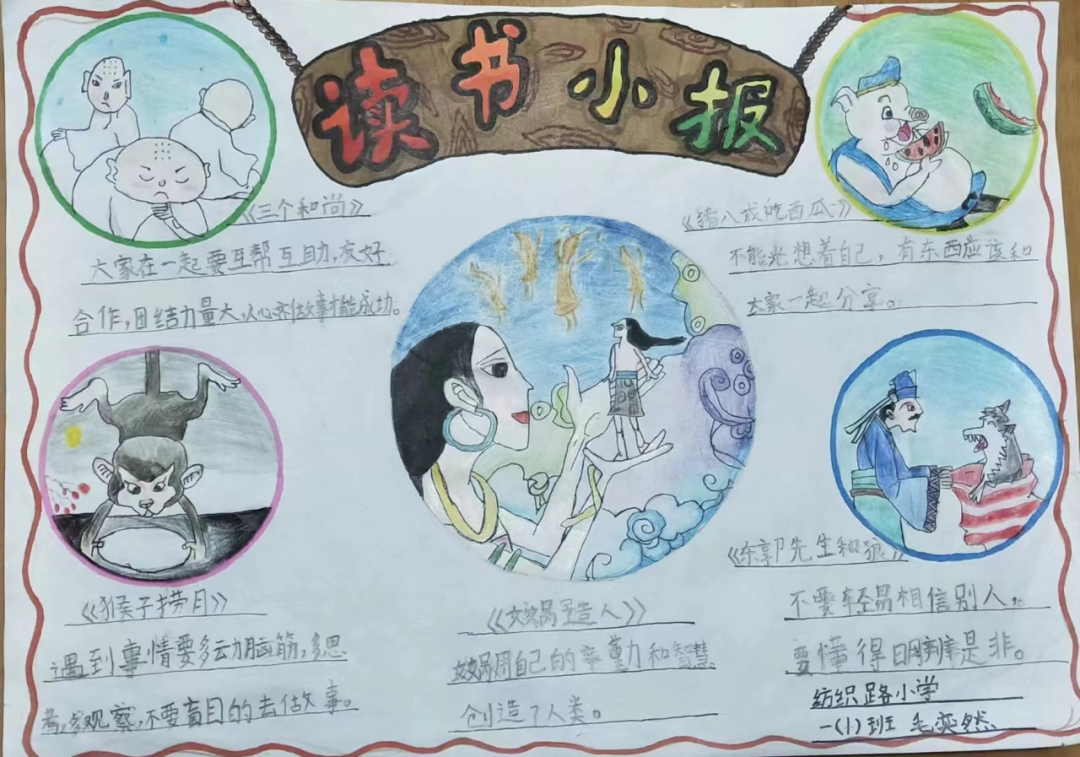 读书小报
《三个和尚》
大家在一起要互帮互助,友好
合作,团结力量大,从心来做事才能成功。
《猪八戒吃西瓜》
不能光想着自己,有东西应该和
大家一起分享。
《猴子捞月》
遇到事情要多动脑筋,多思
考,多观察,不要盲目的去做事。
《女娲造人》
女娲用自己的辛勤和智慧
创造了人类。
《东郭先生和狼》
不要轻易相信别人,
要懂得明辨是非。
纺织路小学
一(1)班 毛奕然